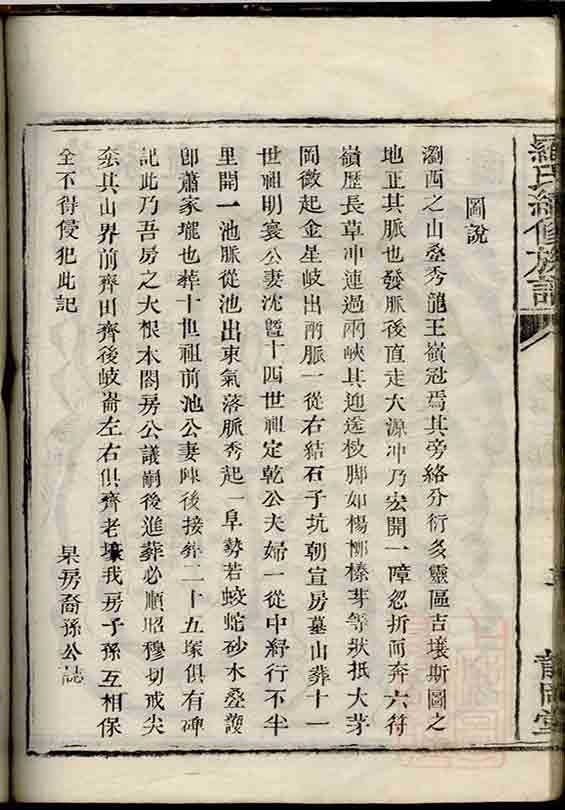 圖說
瀏西之山叠秀龍王嶺冠焉其旁絡分衍多靈區吉壤斯圖之
地正其脉也發脈後直走大源冲乃宏開一障忽折而奔六符
嶺歷長草冲連過兩峽其迎送枝脚如楊柳榛芽等狀抵大茅
岡微起金星岐出兩脈一從右結石子坑朝宣房墓山葬十一
世祖明寰公妻沈暨十四世祖定乾公夫婦一從中紆行不半
里開一池脈從池出束氣落脈秀起一阜勢若蛟蛇砂木叠護
即蕭家壠也葬十世祖前池公妻陳後接葬二十五塚俱有碑
記此乃吾房之大根本閤房公議嗣後進葬必順昭穆切戒尖
奍其山界前齊田齊後岐崙左右俱齊老壕我房子孫互相保
全不得侵犯此記
杲房裔孫公誌
羅氏續修族譜